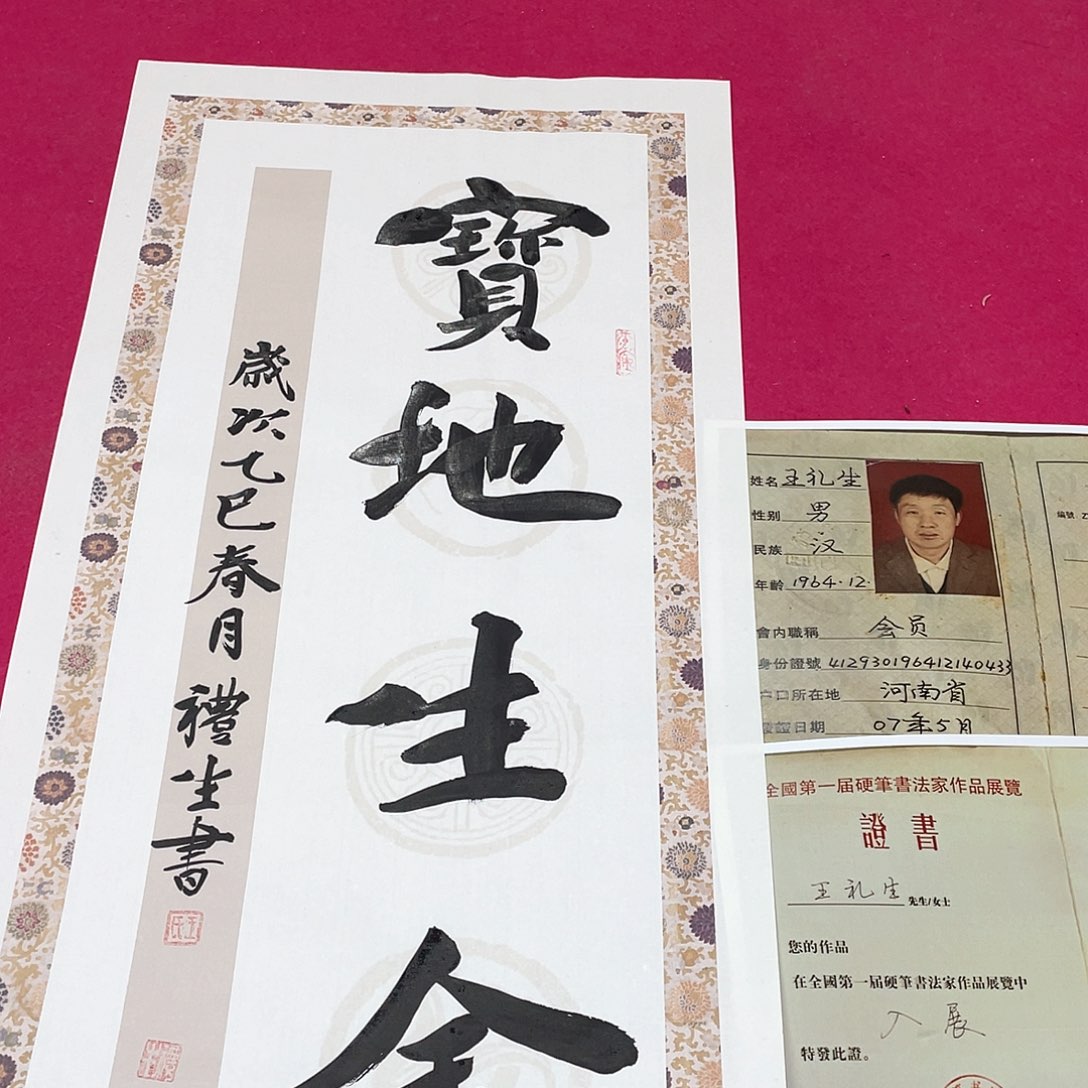 寶地生金
歲次乙巳春月禮生書
王氏
姓名 王礼生
性别 男
民族 汉
年齡 1964·12·
會内職稱 会员
身份證號 412930196412140433
户口所在地 河南省
發證日期 07年5月
編號 Z
全國第一届硬筆書法家作品展覽
證書
王礼生 先生/女士
您的作品
在全國第一届硬筆書法家作品展覽中
入展
特發此證。